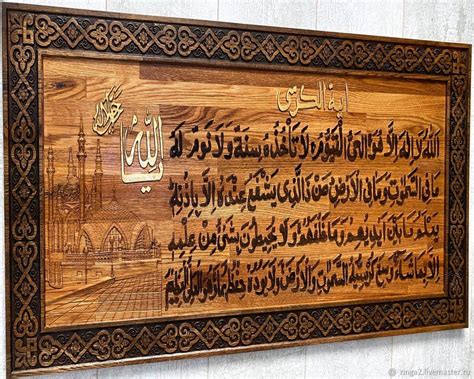 آية الكرسي
الله لا إله إلا هو الحي القيوم لا تأخذه سنة ولا نوم له
ما في السموات وما في الأرض من ذا الذي يشفع عنده إلا بإذنه
يعلم ما بين أيديهم وما خلفهم ولا يحيطون بشيء من علمه
إلا بما شاء وسع كرسيه السموات والأرض ولا يؤده حفظهما وهو العلي العظيم
يا الله
zinga2.livemaster.ru